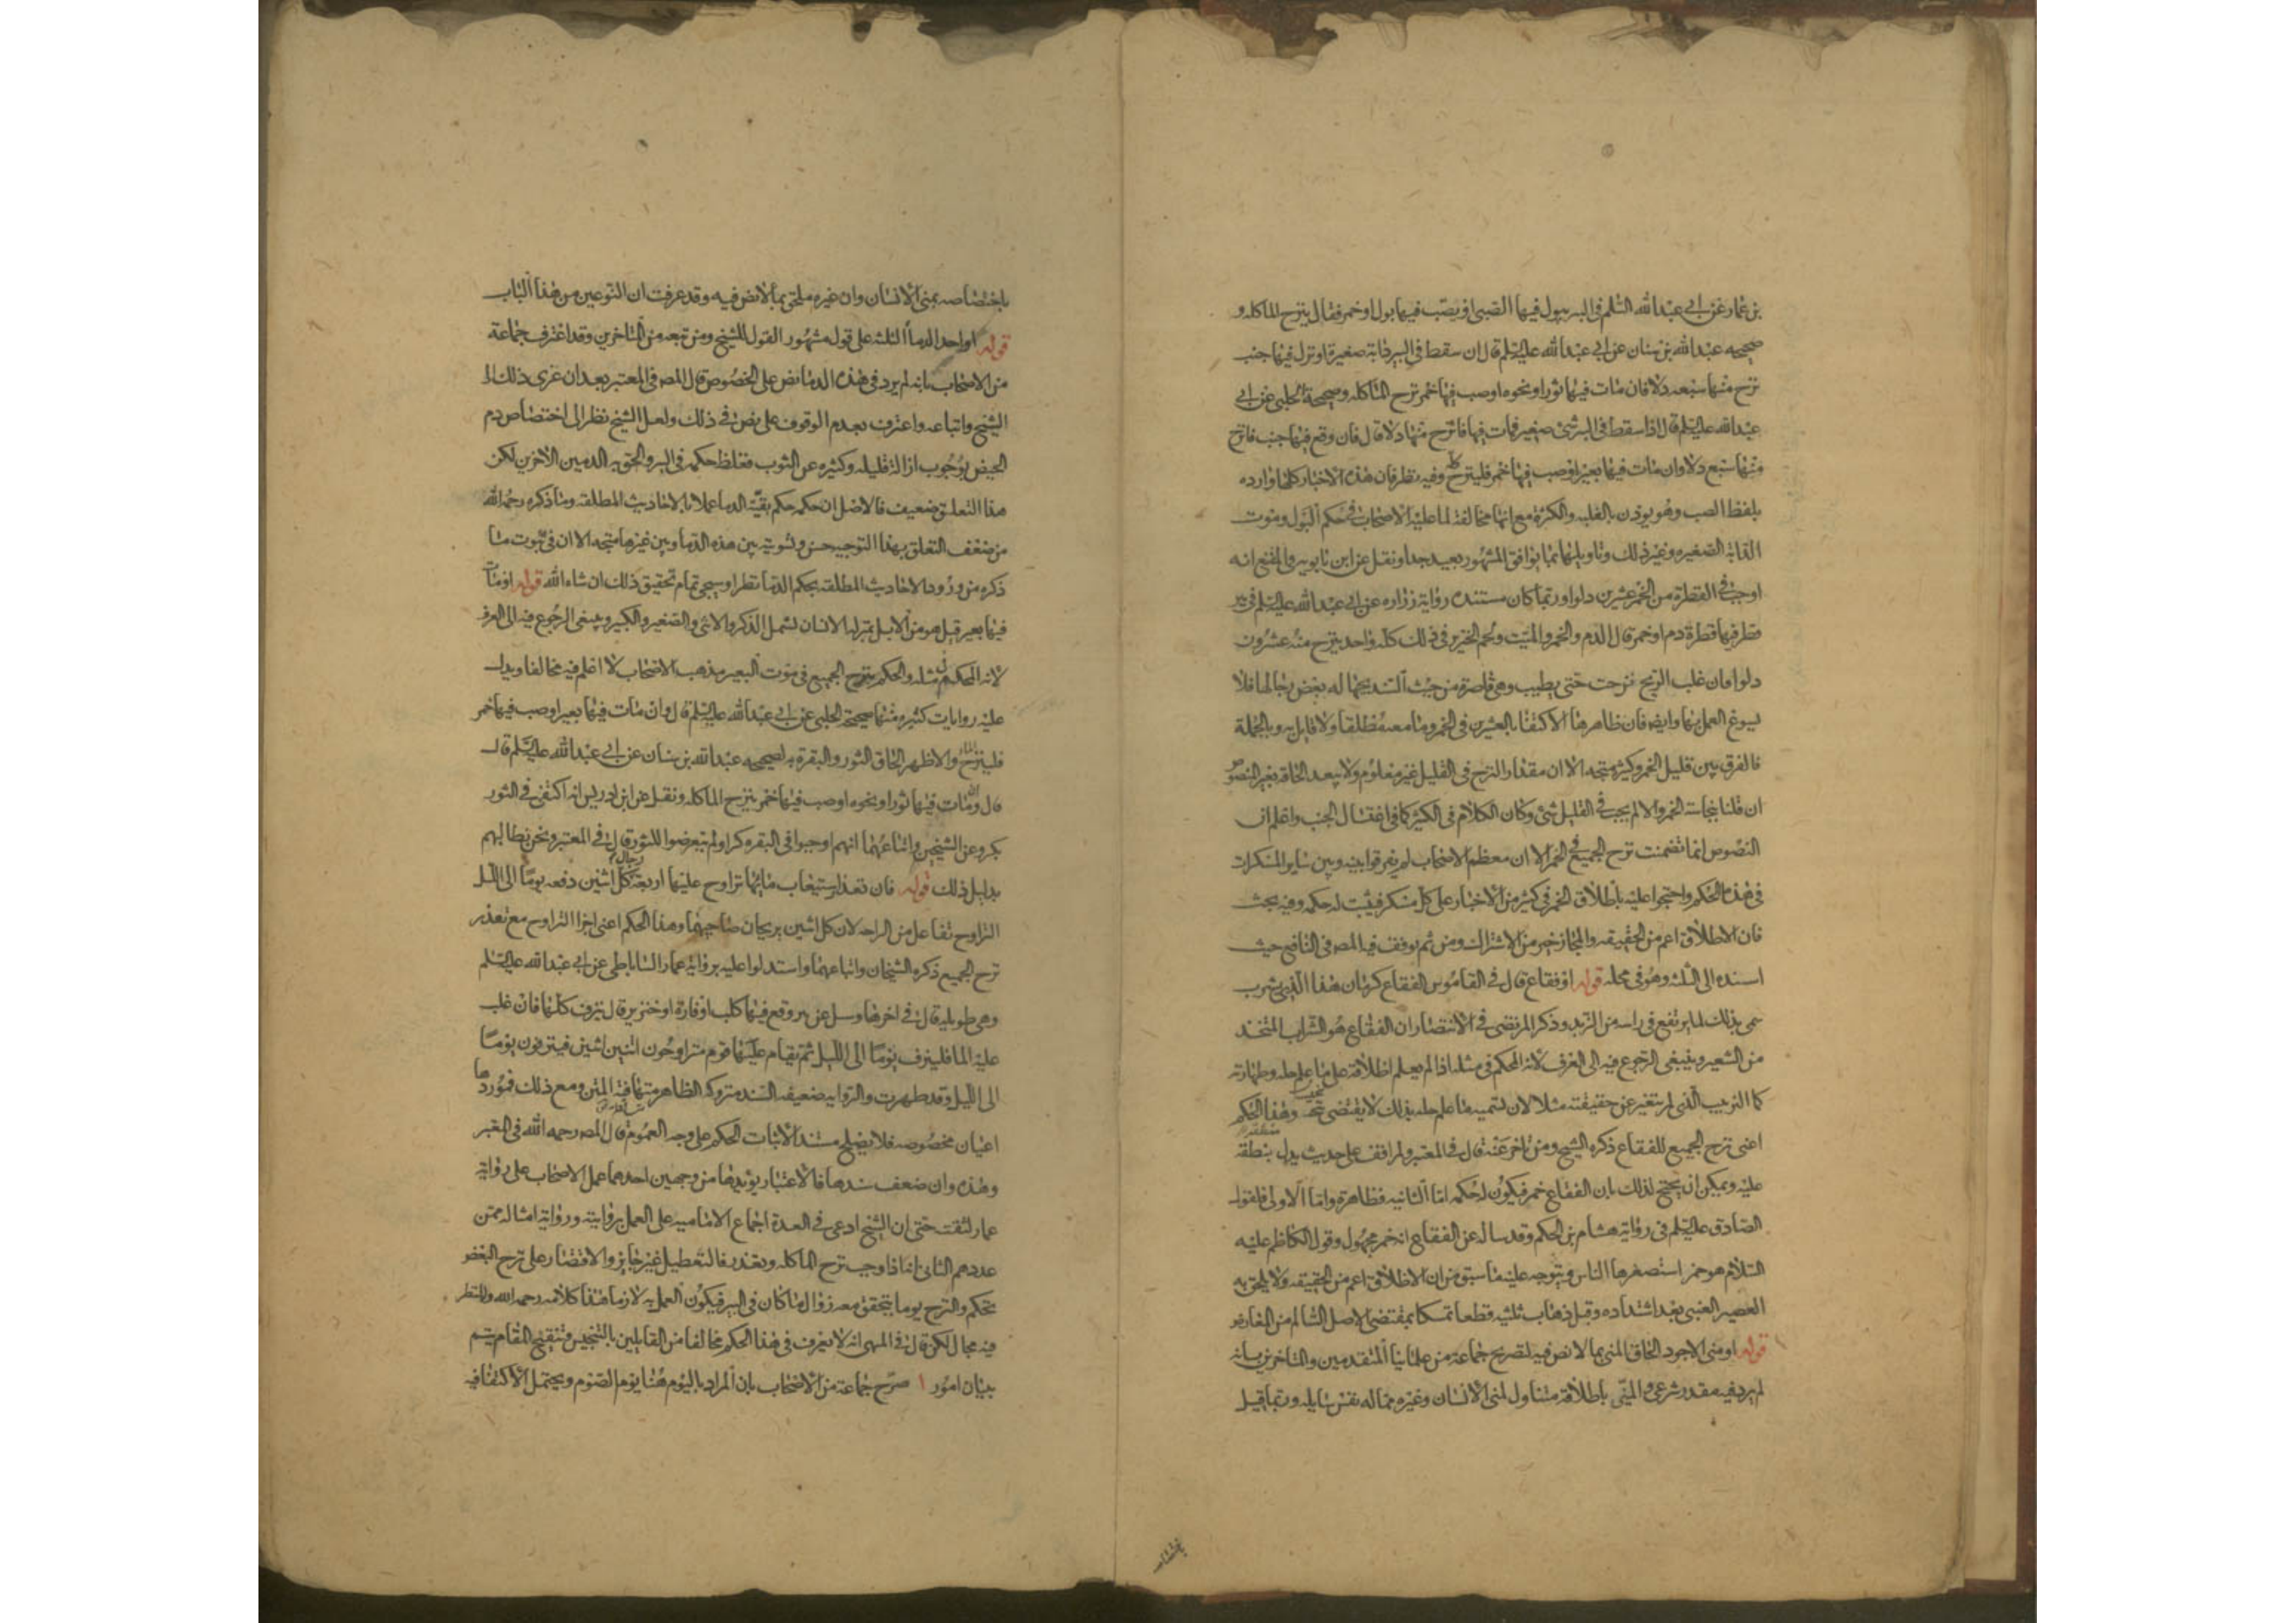 بن عمار عن ابي عبد الله السلم في البير يبول فيها الصبي او يصب فيها بول او خمر فقال ينزح الماكله و
صحيحه عبد الله بن سنان عن ابي عبد الله عليه السلم قال ان سقط في البير دابة صغيرة او نزل فيها جنب
نزح منها سبعه دلا فان مات فيها ثور او نحوه او صب فيها خمر نزح الماكله وصحيحة الحلبي عن ابي
عبد الله عليه السلم قال اذا سقط في البر شئ صغير فمات فيها فانزح منها دلا قال فان وقع فيها جنب فانزح
منها سبع دلا وان مات فيها بعير او صب فيها خمر فلينزح وفيه نظر فان هذه الاخبار كلها وارده
بلفظ الصب وهو يوذن بالغلبه والكثرة مع انها مخالفة لما عليه الاصحاب في حكم البول وموت
الدابة الصغيره وغير ذلك وتاويلها بما يوافق المشهور بعيد جدا ونقل عن ابن بابويه في المقنع انه
اوجب في القطرة من الخمر عشرين دلوا وربما كان مستنده رواية زراره عن ابي عبد الله عليه السلم في بير
قطر فيها قطرة دم او خمر قال الدم والخمر والميت ولحم الخنزير في ذلك كله واحد ينزح منه عشرون
دلوا فان غلب الريح نزحت حتى يطيب وهي قاصرة من حيث السند بجهاله بعض رجالها فلا
يسوغ العمل بها وايضا فان ظاهرها الاكتفا بالعشرين في الخمر وما معه مطلقا ولا قايل به وبالجملة
فالفرق بين قليل الخمر وكثيره متجه الا ان مقدار النزح في القليل غير معلوم ولا يبعد الحاقه بغير المنصوص
ان قلنا بنجاسة الخمر والا لم يجب في القليل شئ وكان الكلام في الكثير كما في اغتسال الجنب واعلم ان
النصوص انما تضمنت نزح الجميع في الخمر الا ان معظم الاصحاب لم يفرقوا بينه وبين ساير المسكرات
في هذا الحكم واحتجوا عليه باطلاق الخمر في كثير من الاخبار على كل مسكر فيثبت له حكمه وفيه بحث
فان الاطلاق اعم من الحقيقه والمجاز خير من الاشتراك ومن ثم توقف فيه المصه في النافع حيث
اسنده الى الثلثه وهو في محله قوله او فقاع قال في القاموس الفقاع كرمان هذا الذي يشرب
سمي بذلك لما يرتفع في راسه من الزبد وذكر المرتضى في الانتصار ان الفقاع هو الشراب المتخذ
من الشعير وينبغي الرجوع فيه الى العرف لانه المحكم في مثله اذا لم يعلم اطلاقه على ما علم حله وطهارته
كما الزبيب الذي لم يتغير عن حقيقته مثلا لان تسميه ما علم حله بذلك لا يقتضي تنجيسه وهذا الحكم
اعني نزح الجميع للفقاع ذكره الشيخ ومن تاخر عنه قال في المعتبر ولم اقف على حديث يدل بنطقه
عليه ويمكن ان يحتج لذلك بان الفقاع خمر فيكون له حكمه اما الثانيه فظاهرة واما الاولى فلقول
الصادق عليه السلم في رواية هشام بن الحكم وقد ساله عن الفقاع انه خمر مجهول وقول الكاظم عليه
السلام هو خمر استصغرها الناس ويتوجه عليه ما سبق من ان الاطلاق اعم من الحقيقه ولا يلحق به
العصير العنبي بعد اشتداده وقبل ذهاب ثلثيه قطعا تمسكا بمقتضى الاصل السالم من المعارض
قوله او مني الاجود الحاق المني بما لا نص فيه لتصريح جماعة من علمائنا المتقدمين والمتاخرين بانه
لم يرد فيه مقدر شرعي والمني باطلاقه متناول لمني الانسان وغيره مما له نفس سايله وربما قيل
باختصاصه بمني الانسان وان غيره ملحق بما لا نص فيه وقد عرفت ان النوعين من هذا الباب
قوله او احد الدما الثلثه على قول مشهور القول للشيخ ومن تبعه من المتاخرين وقد اعترف جماعة
من الاصحاب بانه لم يرد في هذه الدما نص على الخصوص قال المصه في المعتبر بعد ان عزى ذلك الى
الشيخ واتباعه واعترف بعدم الوقوف على نص في ذلك ولعل الشيخ نظر الى اختصاص دم
الحيض بوجوب ازالة قليله وكثيره عن الثوب فغلظ حكمه في البر والحق به الدمين الاخرين لكن
هذا التعلق ضعيف فالاصل ان حكمه حكم بقية الدما عملا بالاحاديث المطلقه وما ذكره رحمه الله
من ضعف التعلق بهذا التوجيه حسن وتسويته بين هذه الدما وبين غيرها متجه الا ان في ثبوت ما
ذكره من ورود الاحاديث المطلقه بحكم الدما نظرا وسيجي تمام تحقيق ذلك ان شاء الله قوله او مات
فيها بعير قيل هو من الابل بمنزلة الانسان يشمل الذكر والانثى والصغير والكبير وينبغي الرجوع فيه الى العرف
لانه المحكم في مثله والحكم بنزح الجميع في موت البعير مذهب الاصحاب لا اعلم فيه مخالفا ويدل
عليه روايات كثيره منها صحيحة الحلبي عن ابي عبد الله عليه السلم قال وان مات فيها بعير او صب فيها خمر
فلينزح الما والاظهر الحاق الثور والبقرة به لصحيحه عبد الله بن سنان عن ابي عبد الله عليه السلم قال
قال وان مات فيها ثور او نحوه او صب فيها خمر ينزح الماكله ونقل عن ابن ادريس انه اكتفى في الثور
بكر وعن الشيخين واتباعهما انهم اوجبوا في البقره كرا ولم يتعرضوا للثور قال في المعتبر ونحن نطالبهم
بدليل ذلك قوله فان تعذر استيعاب مائها تراوح عليها اربعة رجال كل اثنين دفعه يوما الى الليل
التراوح تفاعل من الراحه لان كل اثنين يريحان صاحبهما وهذا الحكم اعني اجزا التراوح مع تعذر
نزح الجميع ذكره الشيخان واتباعهما واستدلوا عليه برواية عمار الساباطي عن ابي عبد الله عليه السلم
وهي طويله قال في اخرها وسل عن بير وقع فيها كلب او فارة او خنزير قال ينزف كلها فان غلب
عليه الما فلينزف يوما الى الليل ثم يقام عليها قوم يتراوحون اثنين اثنين فينزفون يوما
الى الليل وقد طهرت والروايه ضعيفه السند متروكه الظاهر متهافتة المتن ومع ذلك فموردها
اعيان مخصوصه فلا يصلح مستندا لاثبات الحكم على وجه العموم قال المصه رحمه الله في المعتبر
وهذه وان ضعف سندها فالاعتبار يؤيدها من وجهين احدهما عمل الاصحاب على رواية
عمار لثقته حتى ان الشيخ ادعى في العدة اجماع الاماميه على العمل بروايته ورواية امثاله ممن
عددهم الثاني اذا وجب نزح الماكله وتعذر فالتعطيل غير جايز والاقتصار على نزح البعض
تحكم والنزح يوما يتحقق معه زوال ما كان في البير فيكون العمل به لازما هذا كلامه رحمه الله وللنظر
فيه مجال لكن قال في المنتهى انه لا يعرف في هذا الحكم مخالفا من القايلين بالتنجيس وتنقيح المقام يتم
ببيان امور ١ صرح جماعة من الاصحاب بان المراد باليوم هنا يوم الصوم ويحتمل الاكتفا فيه